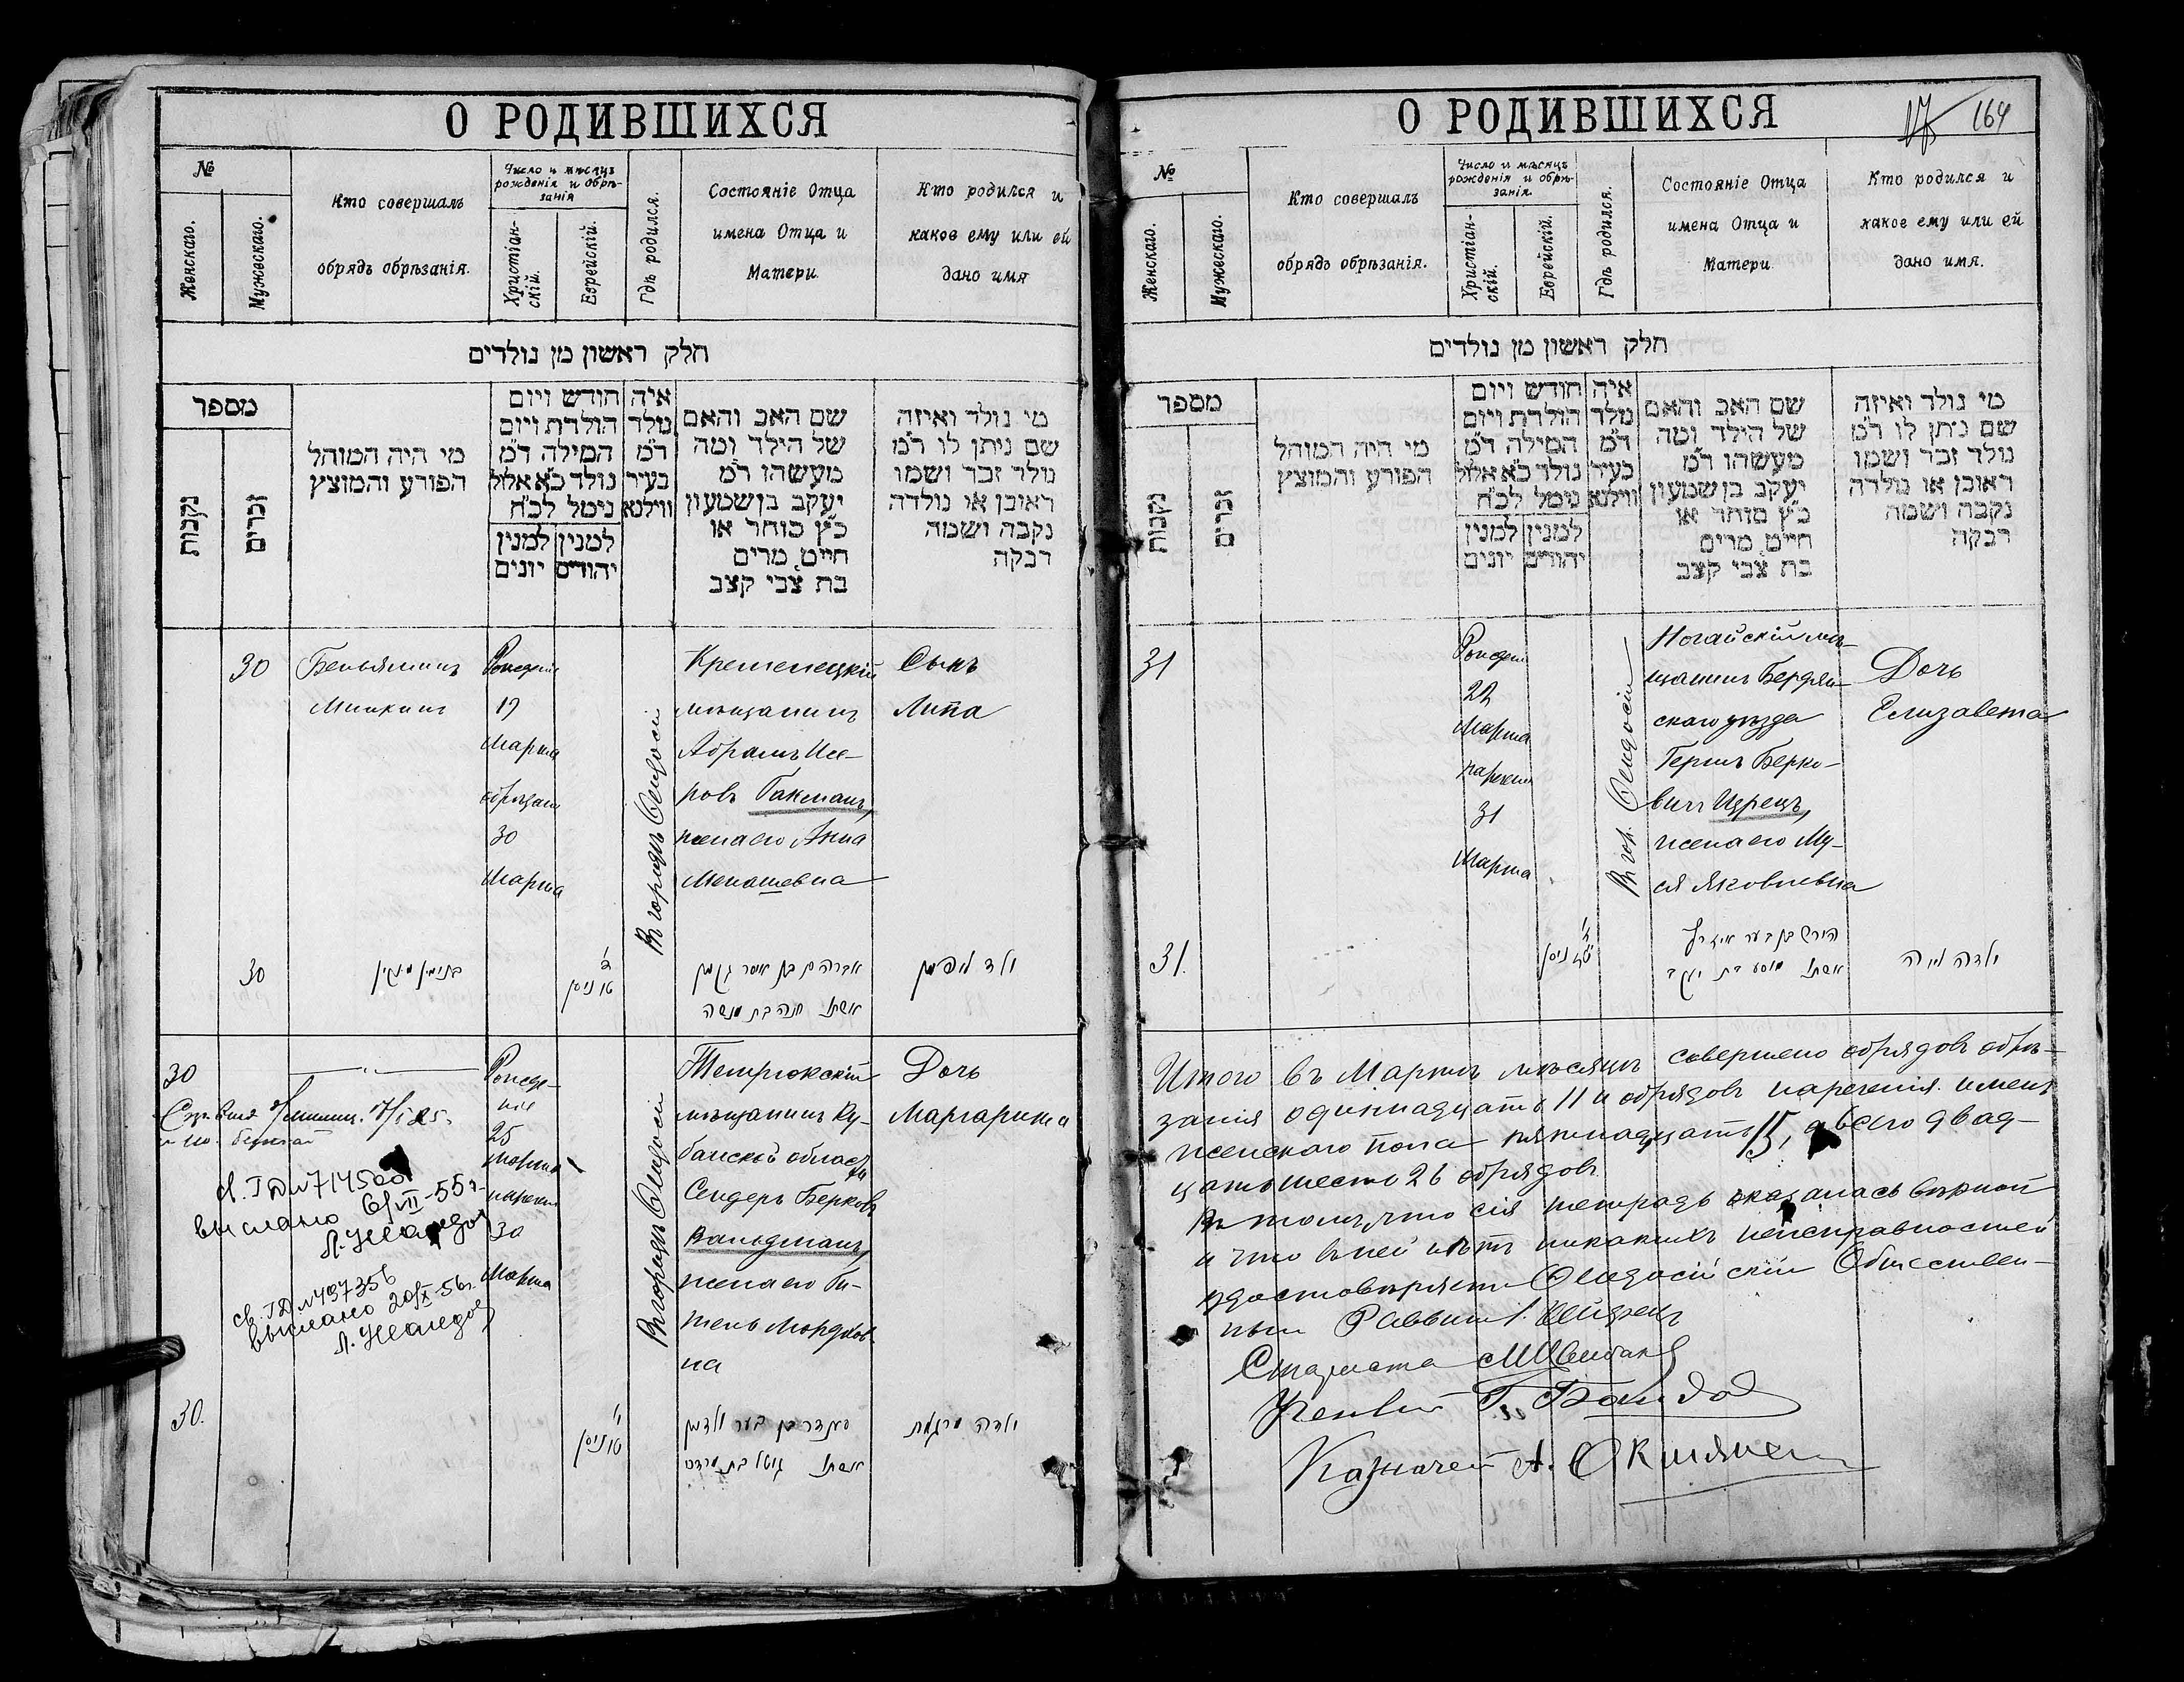 О РОДИВШИХСЯ
№
Женскаго.
Мужескаго.
Кто совершалъ
обрядъ обрѣзанія.
Число и мѣсяцъ
рожденія и обрѣ-
занія
Христіан-
скій.
Еврейскій.
Гдѣ родился.
Состояніе Отца
имена Отца и
Матери
Кто родился и
какое ему или ей
дано имя
חלק ראשון מן נולדים
מספר
נקבות
זכרים
מי היה המוהל
הפורע והמוצץ
חודש ויום
הולדת ויום
המילה ד״מ
נולד כ״א אלול
נימל לכ״ח
למנין יהודים
למנין יונים
איה
נולד
ד״מ
בעיר
ווילנא
שם האב והאם
של הילד ומה
מעשהו ד״מ
יעקב בן שמעון
כ״ץ סוחר או
חייט מרים
בת צבי קצב
מי נולד ואיזה
שם ניתן לו ד״מ
נולד זכר ושמו
ראובן או נולדה
נקבה ושמה
רבקה
30
Беньяминъ
Минкинъ
19
Марта
30
Марта
Въ городѣ Ѳеодосіи
Кременецкій
мѣщанинъ
Абрамъ Исе-
ровъ Гакманъ,
жена его Анна
Менашевна
Сынъ
Липа
30
בנימין מינקין
טו ניסן
אברהם בן איסר גקמן
אשתו חנה בת מנשה
ולד ליפמן
30
Рожде-
ніе
25
Марта
30
Марта
Въ городѣ Ѳеодосіи
Темрюкскій
мѣщанинъ Ку-
банской области
Сендеръ Берковъ
Вальдманъ,
жена его Ги-
тель Мордков-
на
Дочь
Маргарита
св. ГД № 714500
выслано 6/VII-55г.
св. ГД № 497356
выслано 20/IX-56г.
30.
טו ניסן
סענדר בן בער ולדמן
אשתו גיטל בת מרדכי
ולדה מרגלית
О РОДИВШИХСЯ
17 164
№
Женскаго.
Мужескаго.
Кто совершалъ
обрядъ обрѣзанія.
Число и мѣсяцъ
рожденія и обрѣ-
занія.
Христіан-
скій.
Еврейскій.
Гдѣ родился.
Состояніе Отца
имена Отца и
Матери
Кто родился и
какое ему или ей
дано имя.
חלק ראשון מן נולדים
מספר
נקבות
זכרים
מי היה המוהל
הפורע והמוצץ
חודש ויום
הולדת ויום
המילה ד״מ
נולד כ״א אלול
נימל לכ״ח
למנין יהודים
למנין יונים
איה
נולד
ד״מ
בעיר
ווילנא
שם האב והאם
של הילד ומה
מעשהו ד״מ
יעקב בן שמעון
כ״ץ סוחר או
חייט מרים
בת צבי קצב
מי נולד ואיזה
שם ניתן לו ד״מ
נולד זכר ושמו
ראובן או נולדה
נקבה ושמה
רבקה
31
22
Марта
31
Марта
Въ гор. Ѳеодосіи
Ногайскій мѣ-
щанинъ Бердян-
скаго уѣзда
Гершъ Берко-
вичъ
жена его Му-
ся Яковлевна
Дочь
Елизавета
31.
ניסן
הירש בן בער
אשתו מוסע בת יעקב
ולדה
Итого въ Мартѣ мѣсяцѣ совершено обрядовъ обрѣ-
занія одиннадцать 11 и обрядовъ нареченія именъ
женскаго пола пятнадцать 15, а всего двад-
цать шесть 26 обрядовъ.
Въ томъ, что сія тетрадь оказалась вѣрной
и что въ ней нѣтъ никакихъ неисправностей
удостовѣряетъ Ѳеодосійскій Обществен-
ный Раввинъ
Староста
Ученый
Казначей А.